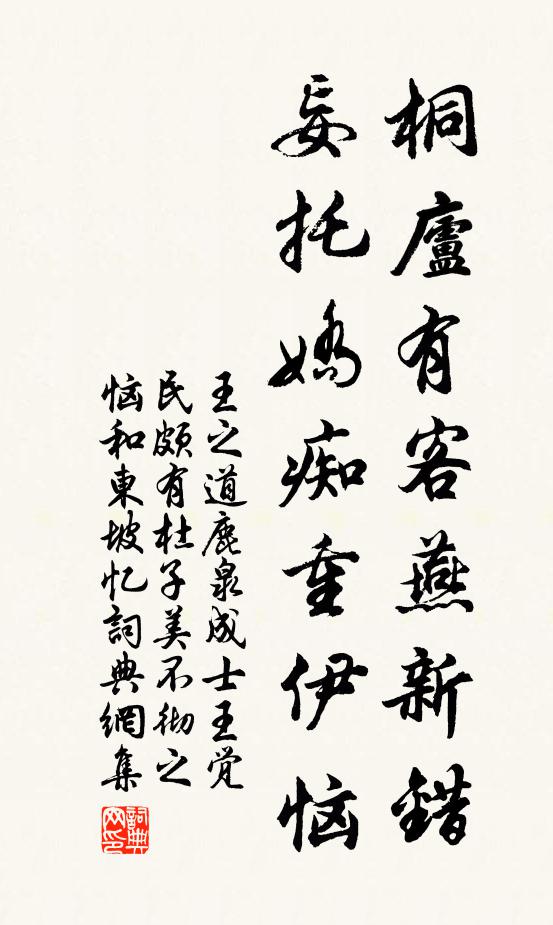 桐廬有客燕新錯
妄托嬌痴重伊恼
王之道鹿泉成士王觉
民颇有杜子美不彻之
恼和東坡忆詞典網集
詞典网印